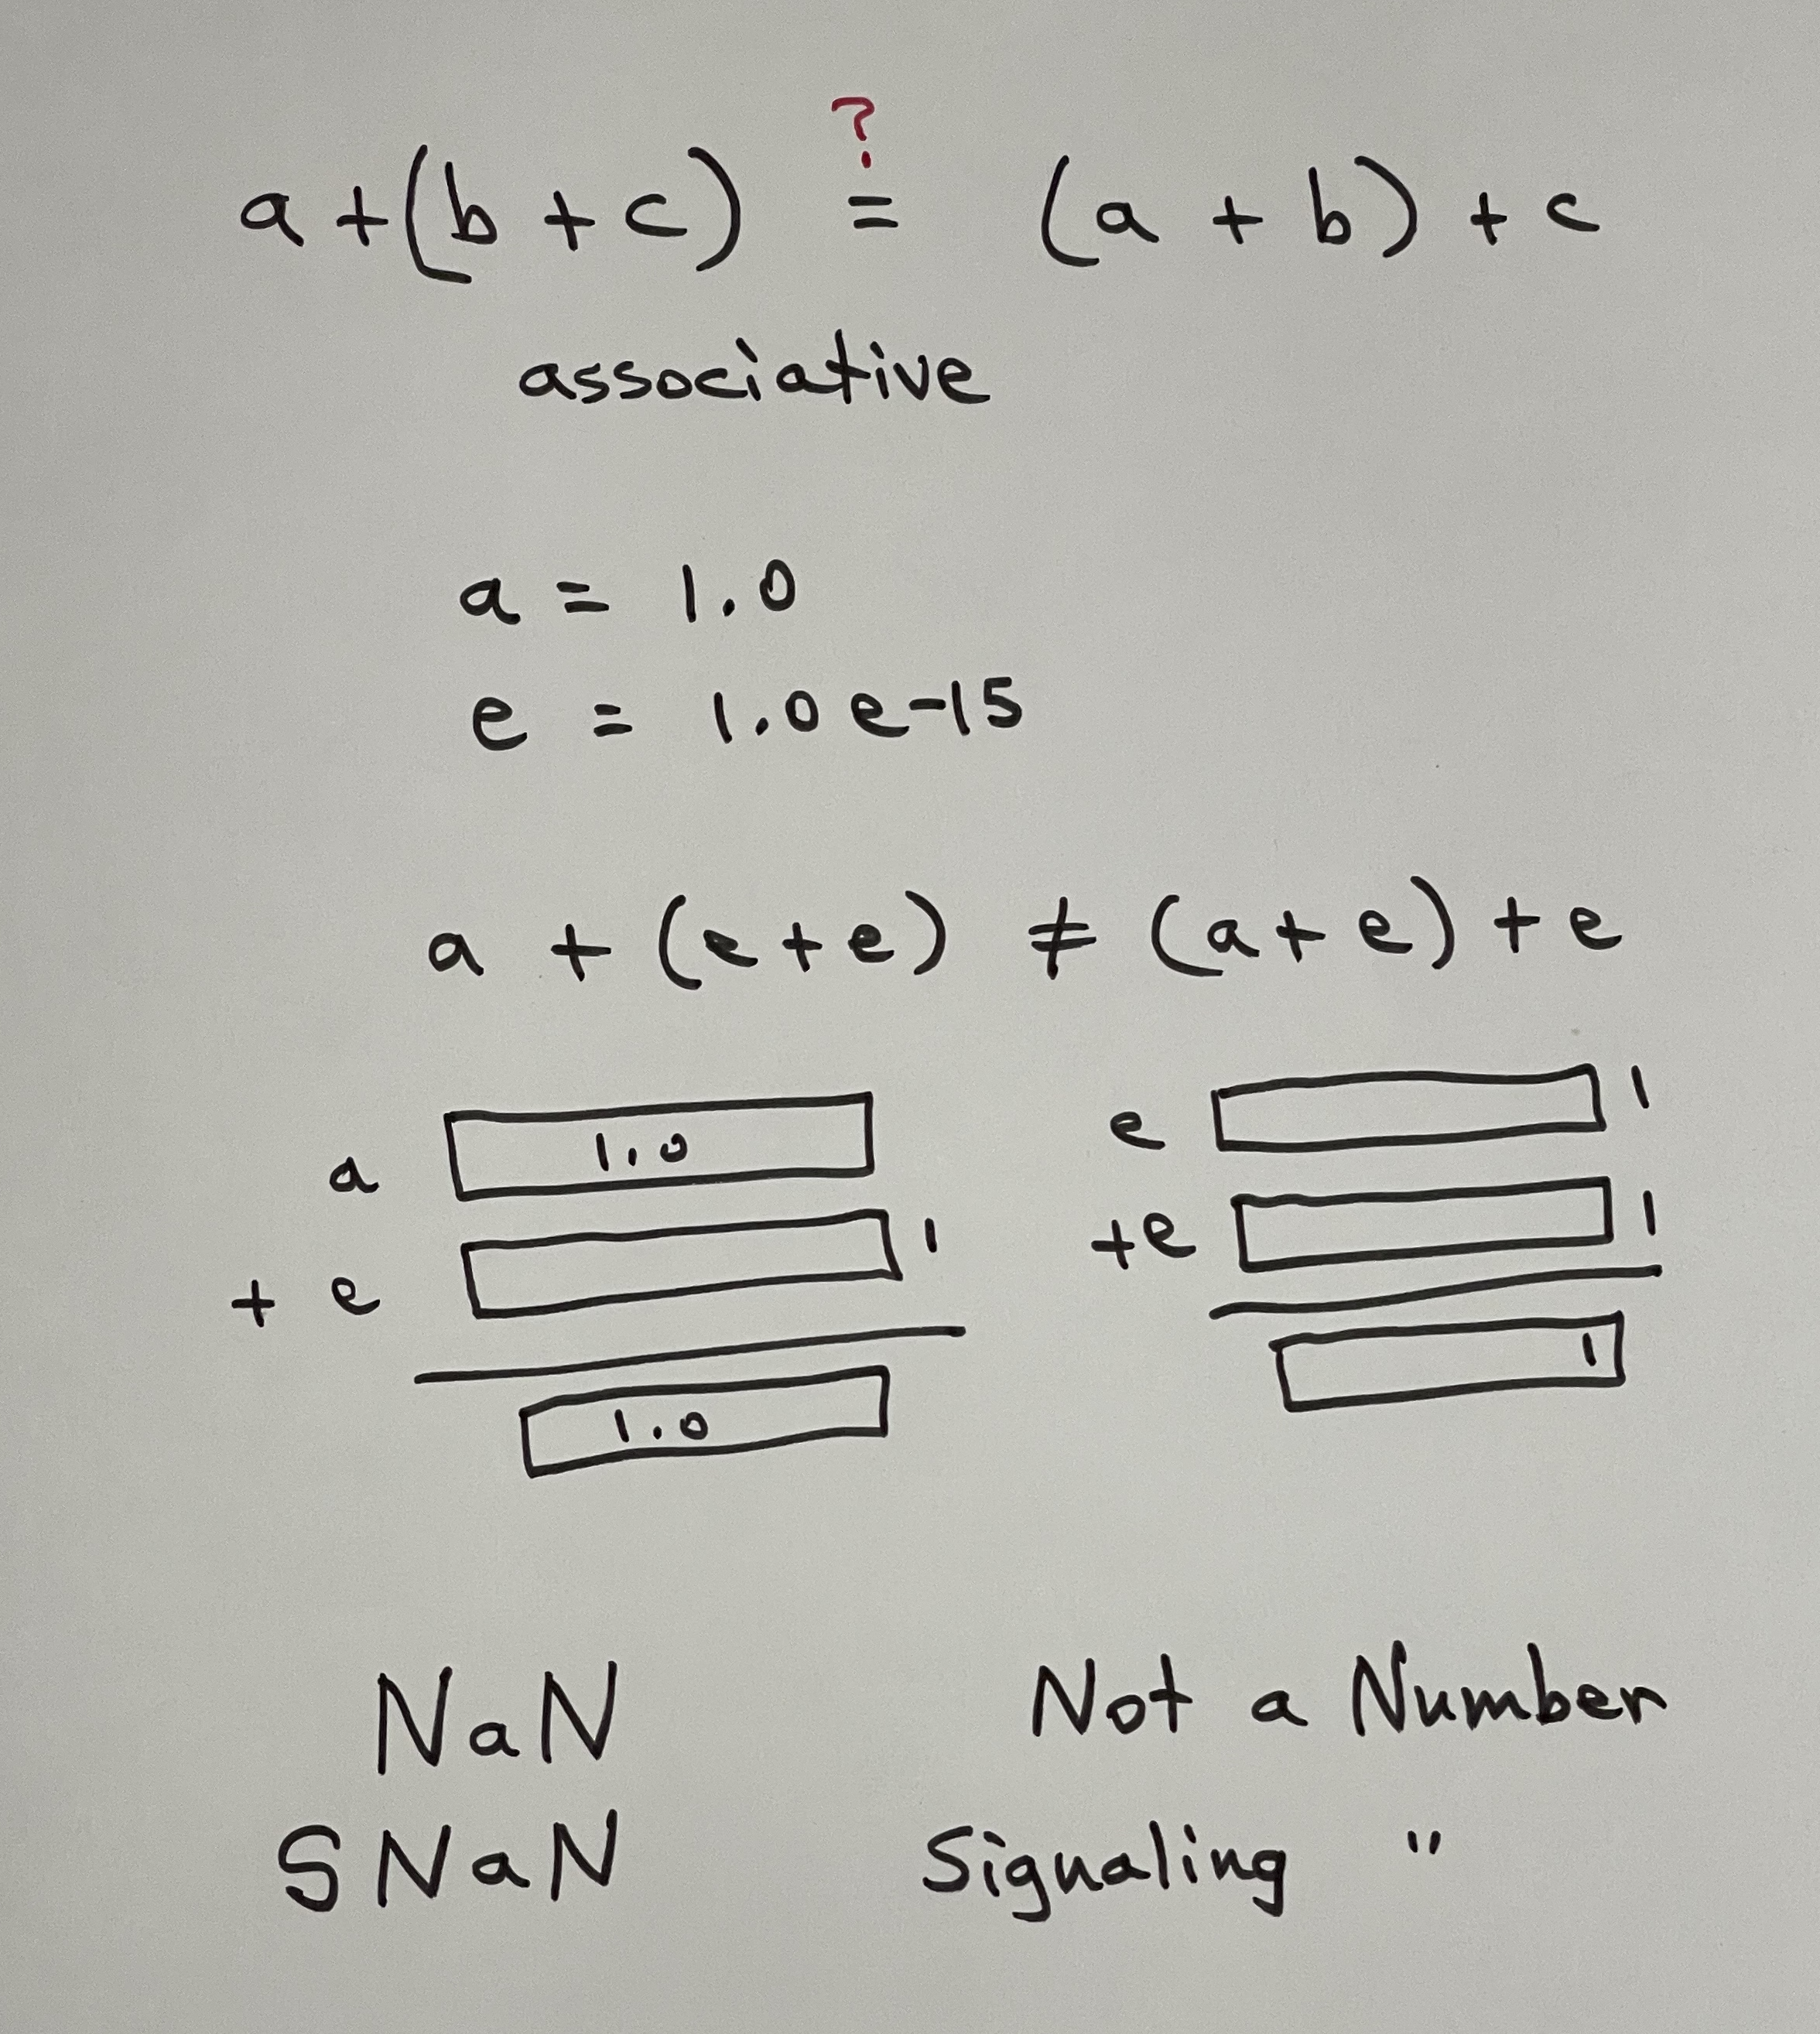 ?
a + (b + c) = (a + b) + c
associative
a = 1.0
e = 1.0 e-15
a + (e + e) ≠ (a + e) + e
a 1.0
+ e 1
1.0
e 1
+e 1
1
NaN Not a Number
SNaN Signaling "